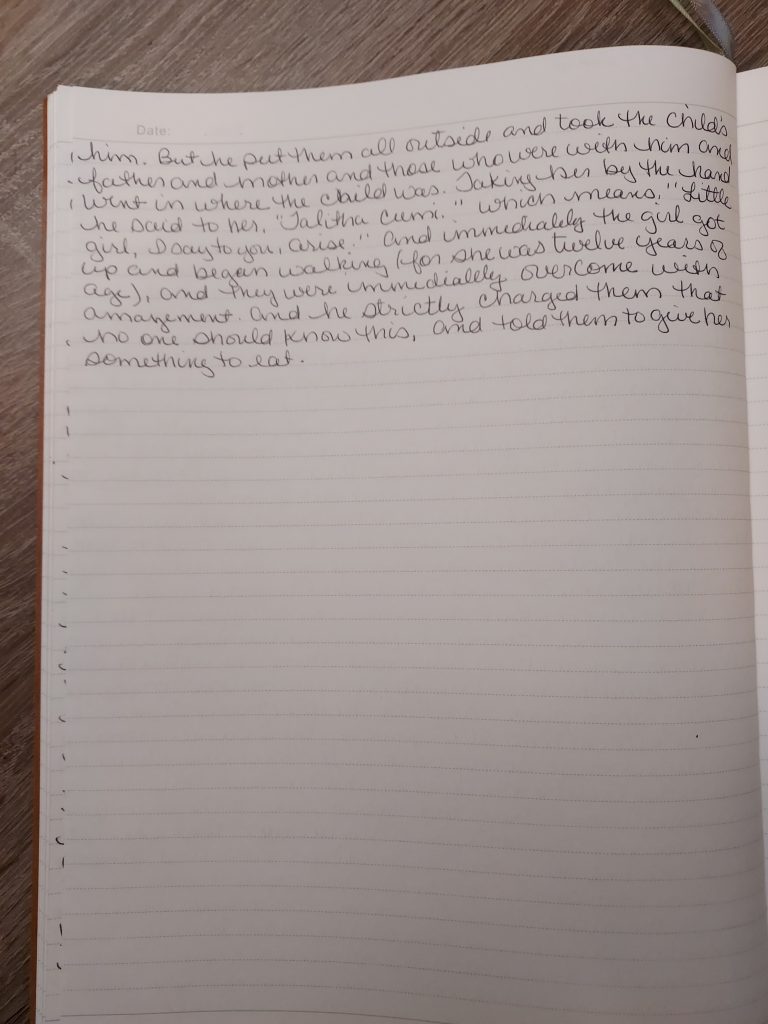 Date:
him. But he put them all outside and took the child's
father and mother and those who were with him and
went in where the child was. Taking her by the hand
he said to her, "Talitha cumi," which means, "Little
girl, I say to you, arise." And immediately the girl got
up and began walking (for she was twelve years of
age), and they were immediately overcome with
amazement. And he strictly charged them that
no one should know this, and told them to give her
something to eat.